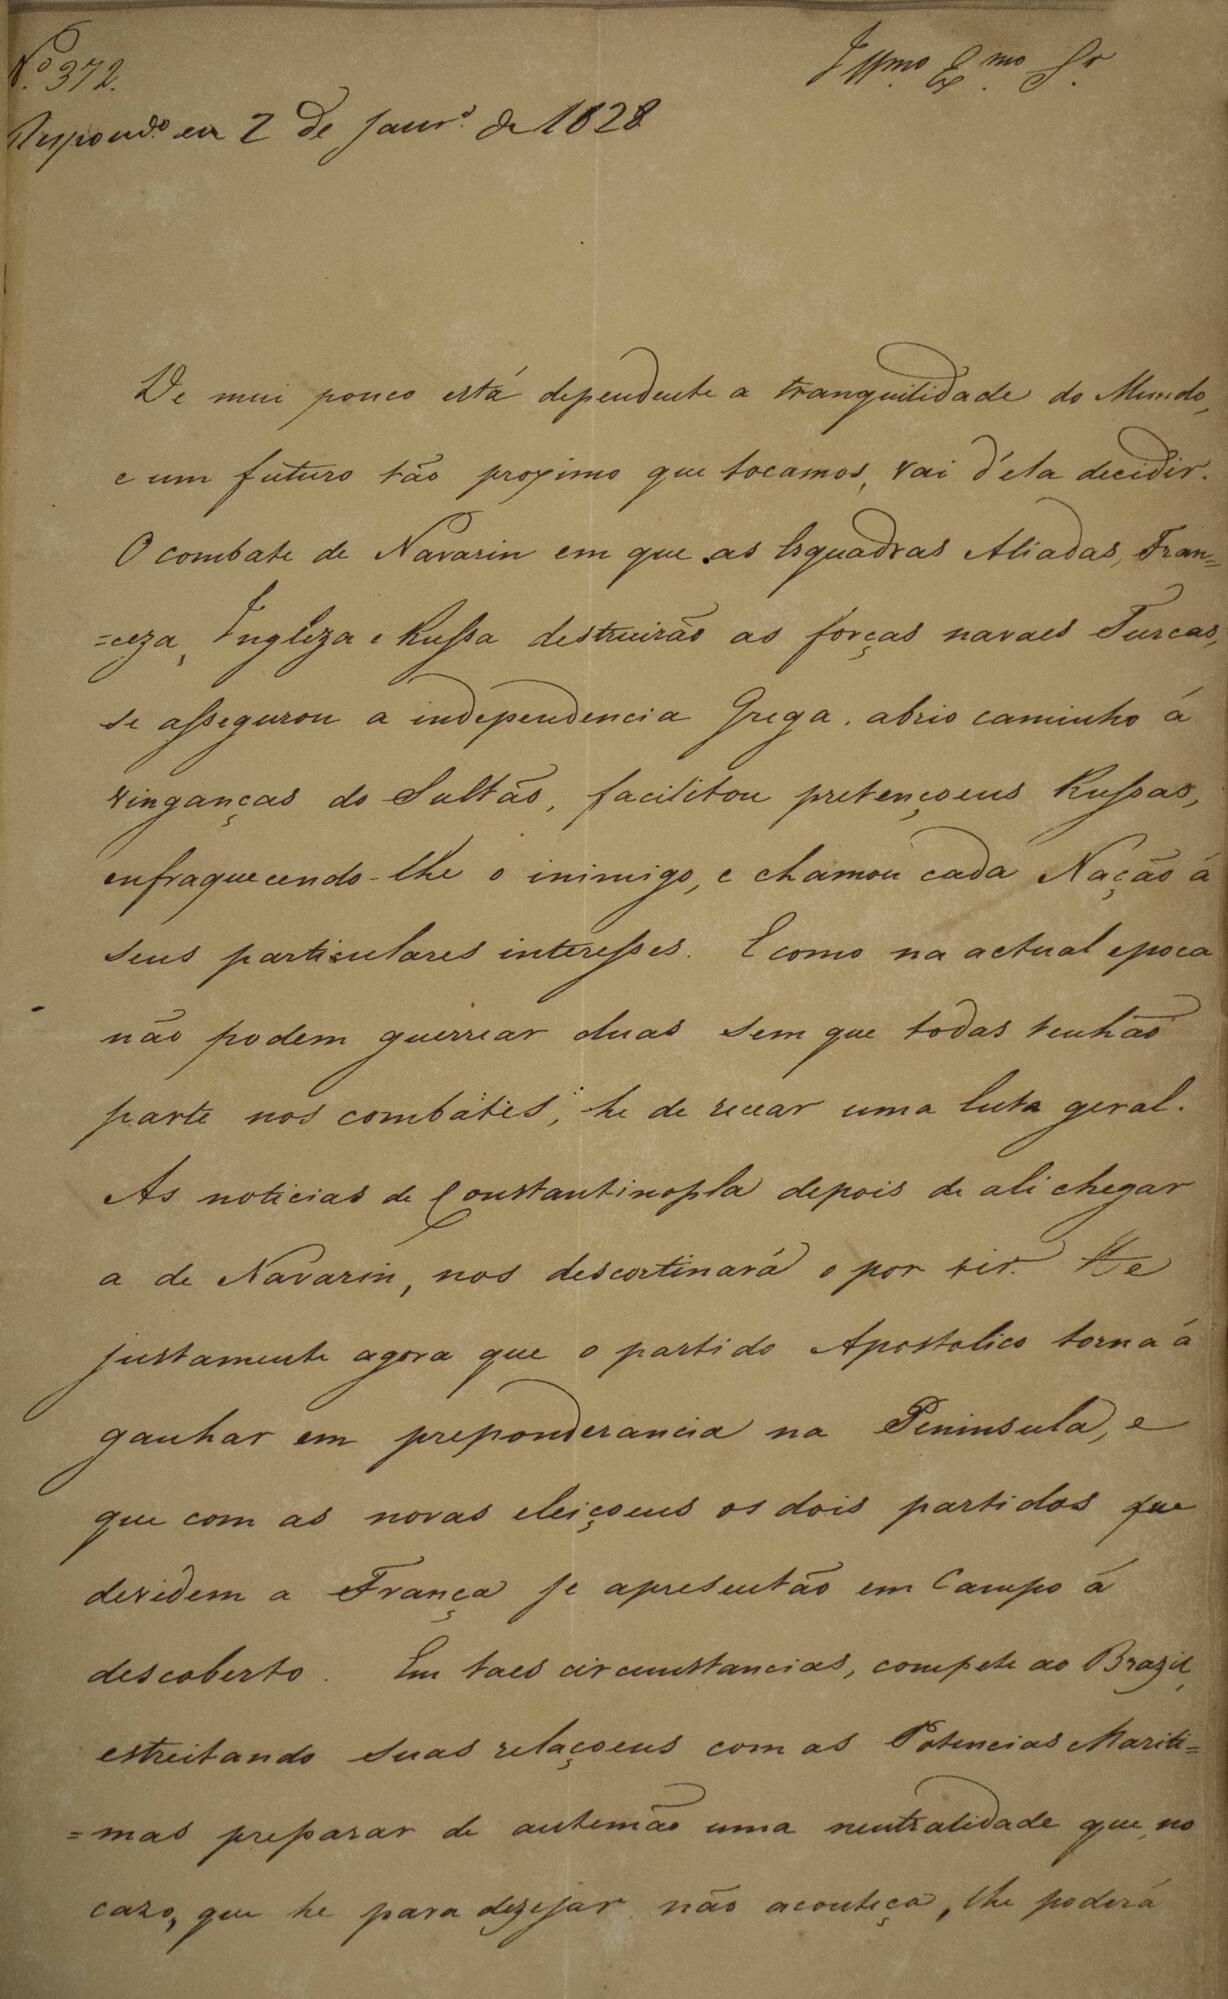 N.º 372.
Illmo. Exmo. Sr.
Respond.º em 2 de Janr.º de 1828
De mui pouco está dependente a tranquilidade do Mundo,
e um futuro tão proximo que tocamos, vai d'ela decidir.
O combate de Navarin em que as Esquadras Aliadas, Fran=
=ceza, Ingleza e Russa destruirão as forças navaes Turcas,
se assegurou a independencia Grega, abrio caminho á
vinganças do Sultão, facilitou pretençoens Russas,
enfraquecendo-lhe o inimigo, e chamou cada Nação á
seus particulares interesses. E como na actual epoca
não podem guerrear duas sem que todas tenhão
parte nos combates, he de recear uma luta geral.
As noticias de Constantinopla depois de ali chegar
a de Navarin, nos descortinará o por vir. He
justamente agora que o partido Apostolico torna á
ganhar em preponderancia na Peninsula, e
que com as novas eleiçoens os dois partidos que
devidem a França se apresentão em Campo á
descoberto. Em taes circumstancias, compete ao Brazil,
estreitando suas relaçoens com as Potencias Mariti=
=mas preparar de antemão uma neutralidade que, no
cazo, que he para dezejar não aconteça, lhe poderá